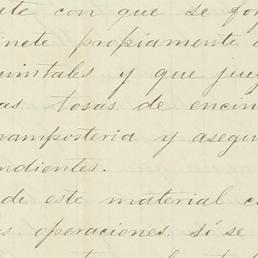 ete con que se for
inete propiamente d
quintales y que jueg
as tosas de encin
vamposteria y asegu
ndientes.
de este material co
s operaciones. Si se